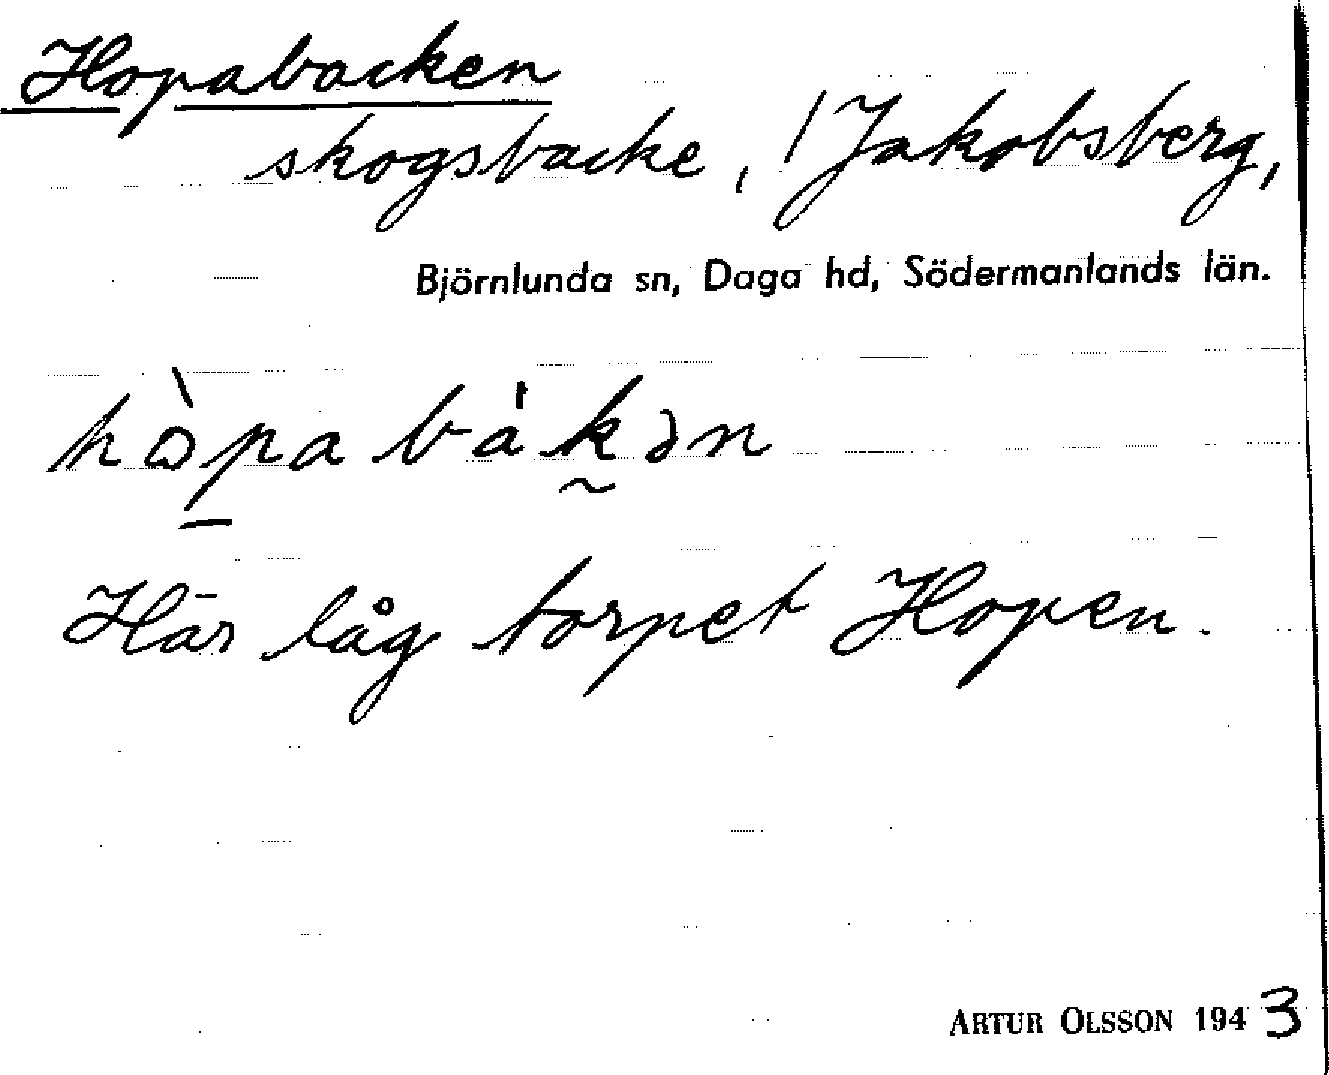 Hopabacken
skogsbacke, / Jakobsberg,
Björnlunda sn, Daga hd, Södermanlands län.
hòpabàkən
Här låg torpet Hopen.
ARTUR OLSSON 1943